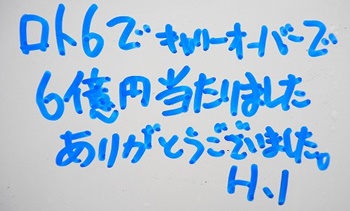 ロト6でキャリーオーバーで
6億円当たりました
ありがとうございました。
H.I